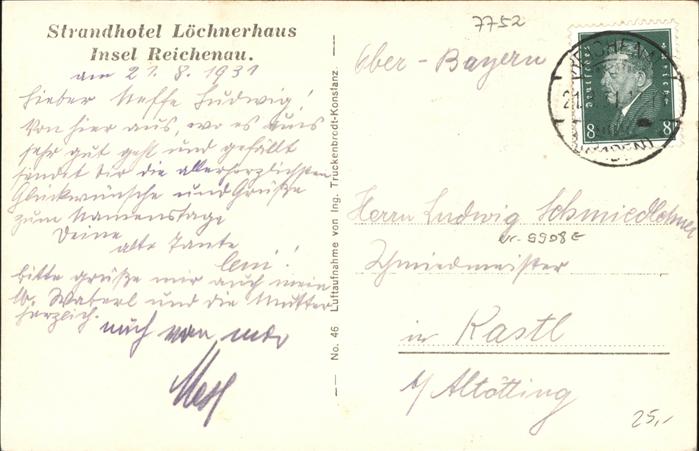 Strandhotel Löchnerhaus
Insel Reichenau.
am 21. 8. 1931
Lieber Neffe Ludwig!
Von hier aus, wo es uns
sehr gut geht und gefällt
sendet dir die allerherzlichsten
Glückwünsche und Grüße
zum Namenstage
Deine
alte Tante
Leni!
bitte grüße mir auch mein
lb. Waberl und die Mutter
herzlich.
auch von mir
No. 46 Luftaufnahme von Ing. Truckenbrodt-Konstanz.
7752
Ober-Bayern
Deutsches Reich
8 8
REICHENAU
(BADEN)
Herrn Ludwig Schmiedlehner
Nr. 9908E
Schmiedmeister
in Kastl
b/ Altötting
25,-